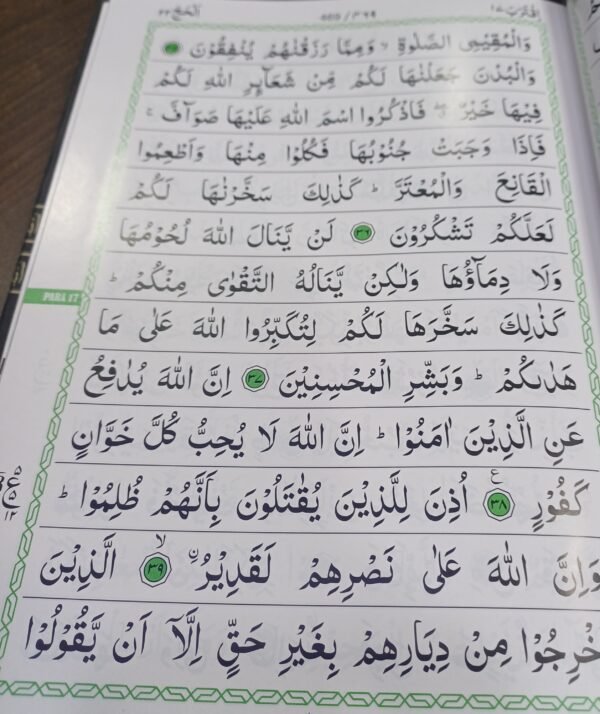 اقترب ١٧ ٣٦٩ / 369 الحج ٢٢
وَالْمُقِيْمِى الصَّلٰوةِ ۙ وَمِمَّا رَزَقْنٰهُمْ يُنْفِقُوْنَ ﴿٣٥﴾
وَالْبُدْنَ جَعَلْنٰهَا لَكُمْ مِّنْ شَعَآىِٕرِ اللّٰهِ لَكُمْ
فِيْهَا خَيْرٌ ۖ فَاذْكُرُوا اسْمَ اللّٰهِ عَلَيْهَا صَوَآفَّ ۚ
فَاِذَا وَجَبَتْ جُنُوْبُهَا فَكُلُوْا مِنْهَا وَاَطْعِمُوا
الْقَانِعَ وَالْمُعْتَرَّ ؕ كَذٰلِكَ سَخَّرْنٰهَا لَكُمْ
لَعَلَّكُمْ تَشْكُرُوْنَ ﴿٣٦﴾ لَنْ يَّنَالَ اللّٰهَ لُحُوْمُهَا
وَلَا دِمَآؤُهَا وَلٰكِنْ يَّنَالُهُ التَّقْوٰى مِنْكُمْ ؕ
PARA 17
كَذٰلِكَ سَخَّرَهَا لَكُمْ لِتُكَبِّرُوا اللّٰهَ عَلٰى مَا
هَدٰىكُمْ ؕ وَبَشِّرِ الْمُحْسِنِيْنَ ﴿٣٧﴾ اِنَّ اللّٰهَ يُدٰفِعُ
عَنِ الَّذِيْنَ اٰمَنُوْا ؕ اِنَّ اللّٰهَ لَا يُحِبُّ كُلَّ خَوَّانٍ
كَفُوْرٍ ﴿٣٨﴾ ع اُذِنَ لِلَّذِيْنَ يُقٰتَلُوْنَ بِاَنَّهُمْ ظُلِمُوْا ؕ
ع ٥ ١٢
وَاِنَّ اللّٰهَ عَلٰى نَصْرِهِمْ لَقَدِيْرُ ۨ ﴿٣٩﴾ ۙ الَّذِيْنَ
خْرِجُوْا مِنْ دِيَارِهِمْ بِغَيْرِ حَقٍّ اِلَّاۤ اَنْ يَّقُوْلُوْا